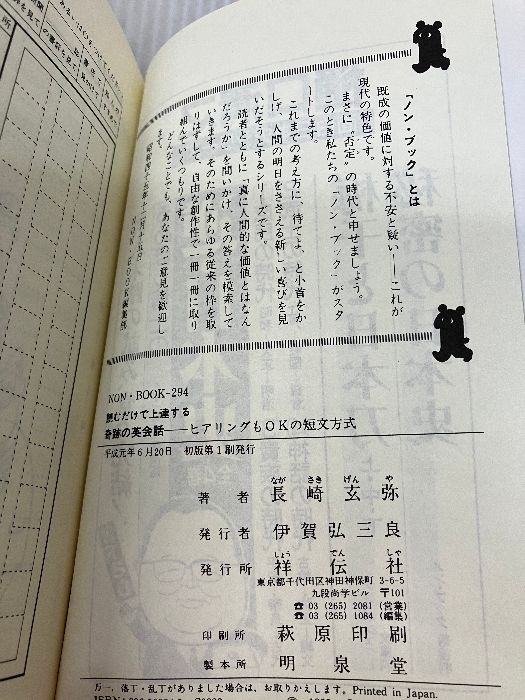 「ノン・ブック」とは
既成の価値に対する不安と疑い――これが
現代の特色です。
まさに〝否定〟の時代と申せましょう。
このとき私たちの「ノン・ブック」がスタ
ートします。
これまでの考え方に、待てよ、と小首をか
しげ、人間の明日をささえる新しい喜びを見
いだそうとするシリーズです。
読者とともに「真に人間的な価値とはなん
だろうか」を問いかけ、その答えを模索して
いきます。そのためにあらゆる従来の枠を取
りはずして、自由な創作性で一冊一冊に取り
組んでいくつもりです。
どんなことでも、あなたのご意見を歓迎し
ます。
NON・BOOK編集部
NON・BOOK-294
読むだけで上達する
奇跡の英会話――ヒアリングもOKの短文方式
平成元年6月20日 初版第1刷発行
著者 長崎玄弥
ながさきげんや
発行者 伊賀弘三良
発行所 祥伝社
しょうでんしゃ
東京都千代田区神田神保町3-6-5
九段尚学ビル 〒101
☎03(265)2081(営業)
☎03(265)1084(編集)
印刷所 萩原印刷
製本所 明泉堂
万一、落丁・乱丁がありました場合は、お取りかえします。Printed in Japan.